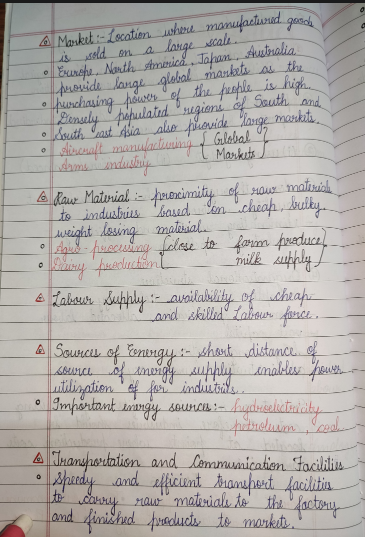 Market :- Location where manufactured goods
is sold on a large scale.
Europe, North America, Japan, Australia
provide large global markets as the
purchasing power of the people is high.
Densely populated regions of South and
South east Asia also provide large markets.
Aircraft manufacturing { Global
Arms industry Markets }
Raw Material :- proximity of raw materials
to industries based on cheap, bulky
weight losing material.
Agro-processing { close to farm produce
Dairy production milk supply }
Labour Supply :- availability of cheap
and skilled Labour force.
Sources of Energy :- short distance of
source of energy supply enables power
utilization of for industries.
Important energy sources :- hydroelectricity
petroleum, coal
Transportation and Communication Facilities
Speedy and efficient transport facilities
to carry raw materials to the factory
and finished products to markets.